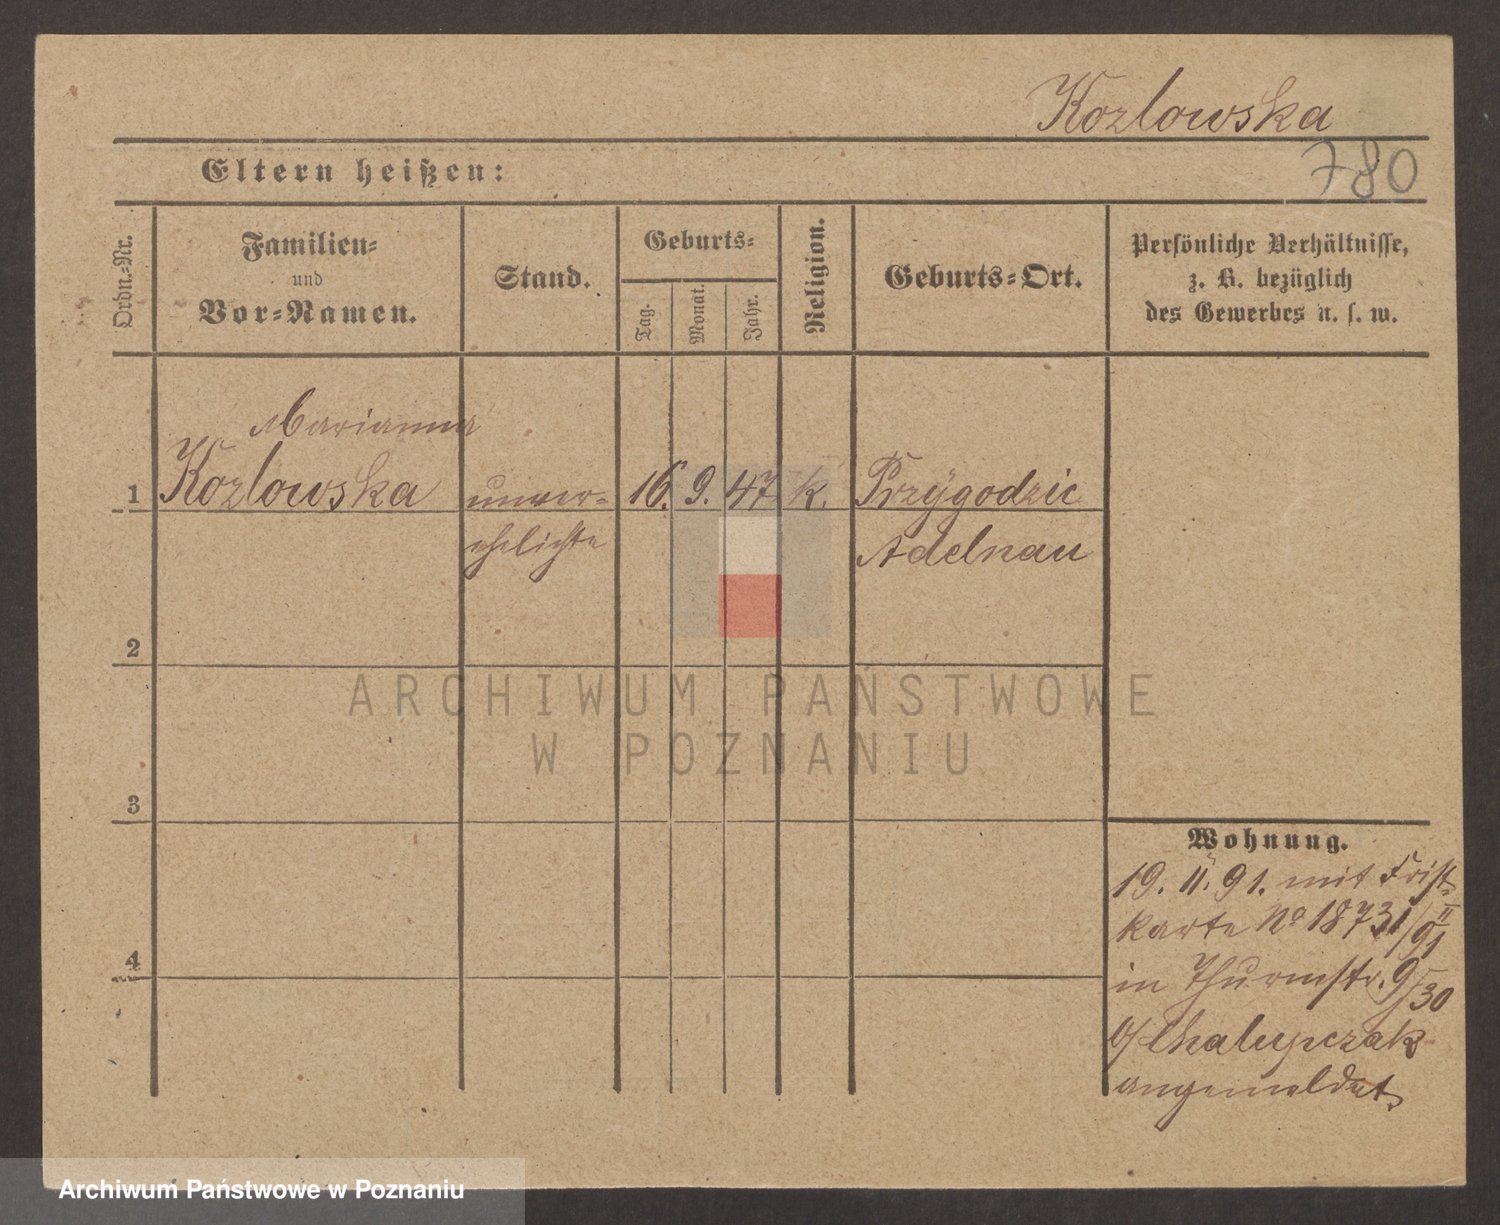 Kozlowska
780
Eltern heißen:
Ordn.-Nr.
Familien-
und
Vor-Namen.
Stand.
Geburts-
Tag.
Monat.
Jahr.
Religion.
Geburts-Ort.
Persönliche Verhältnisse,
z. B. bezüglich
des Gewerbes u. s. w.
Marianna
1 Kozlowska unver- 16. 9. 47 k. Przygodzic
ehelichte Adelnau
2
ARCHIWUM PAŃSTWOWE
W POZNANIU
3
Wohnung.
19. II. 91. mit Frist-
karte No 18731/II 91
in Thurmstr. 9/30
b/ Chalupczak
angemeldet.
4
Archiwum Państwowe w Poznaniu